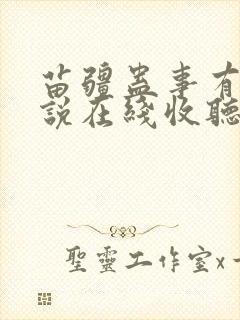 苗疆蛊事有
説在綫收聽
聖靈工作室x